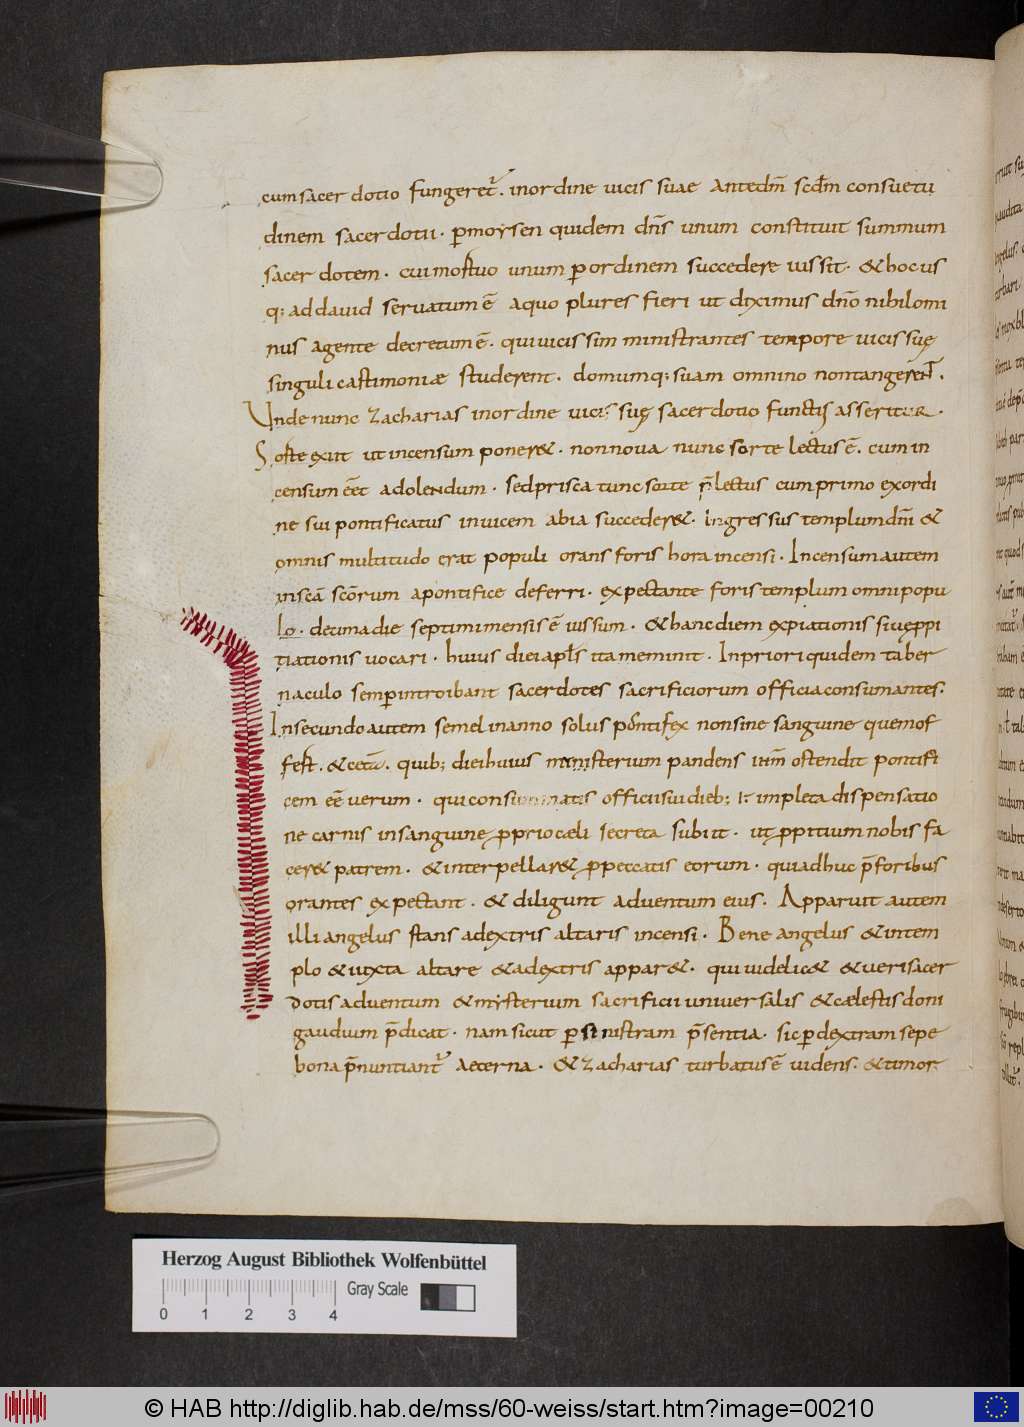 cum sacerdotio fungeret᷑. in ordine uicis suae Ante dm̄ scd̄m consuetu
dinem sacerdotii. ꝑ moysen quidem dn̄s unum constituit summum
sacerdotem. cui mortuo unum ꝑ ordinem succedere iussit. & hoc us
q; ad dauid seruatum ē a quo plures fieri ut diximus dn̄o nihilomi
nus agente decretum ē. qui uicissim ministrantes tempore uicis suę
singuli castimoniæ studerent. domumq; suam omnino non tangerent.
Unde nunc zacharias in ordine uicis suę sacerdotio functus asseritur.
Sorte exiit ut incensum poner&. non noua nunc sorte lectus ē. cum in
censum eēt adolendum. sed prisca tunc sorte p̄lectus cum primo exordi
ne sui pontificatus in uicem abia succeder&. Ingressus templum dn̄i &
omnis multitudo erat populi orans foris hora incensi. Incensum autem
in scā scōrum a pontifice deferri. expectante foris templum omni popu
lo. decima die septimi mensis ē iussum. & hanc diem expiationis siue ꝓpi
tiationis uocari. huius diei apl̄s ita meminit. In priori quidem taber
naculo semꝑ introibant sacerdotes sacrificiorum officia consumantes.
In secundo autem semel in anno solus pontifex non sine sanguine quem of
fert. & cet̄a. quib; diei huius mynisterium pandens ih̄m ostendit pontifi
cem eē uerum. qui consummatis officii sui dieb; impleta dispensatio
ne carnis in sanguine ꝓprio cæli secreta subiit. ut ꝓpitium nobis fa
cer& patrem. & interpellar& ꝓ peccatis eorum. qui adhuc p̄ foribus
orantes expectant. & diligunt aduentum eius. Apparuit autem
illi angelus stans a dextris altaris incensi. Bene angelus & in tem
plo & iuxta altare & a dextris appar&. qui uidelic& & ueri sacer
dotis aduentum & mysterium sacrificii uniuersalis & cælestis doni
gaudium p̄dicat. nam sicut ꝑ sinistram p̄sentia. sic ꝑ dextram sepe
bona p̄nuntiant᷑ aeterna. & zacharias turbatus ē uidens. & timor
Herzog August Bibliothek Wolfenbüttel
Gray Scale
0 1 2 3 4
© HAB http://diglib.hab.de/mss/60-weiss/start.htm?image=00210